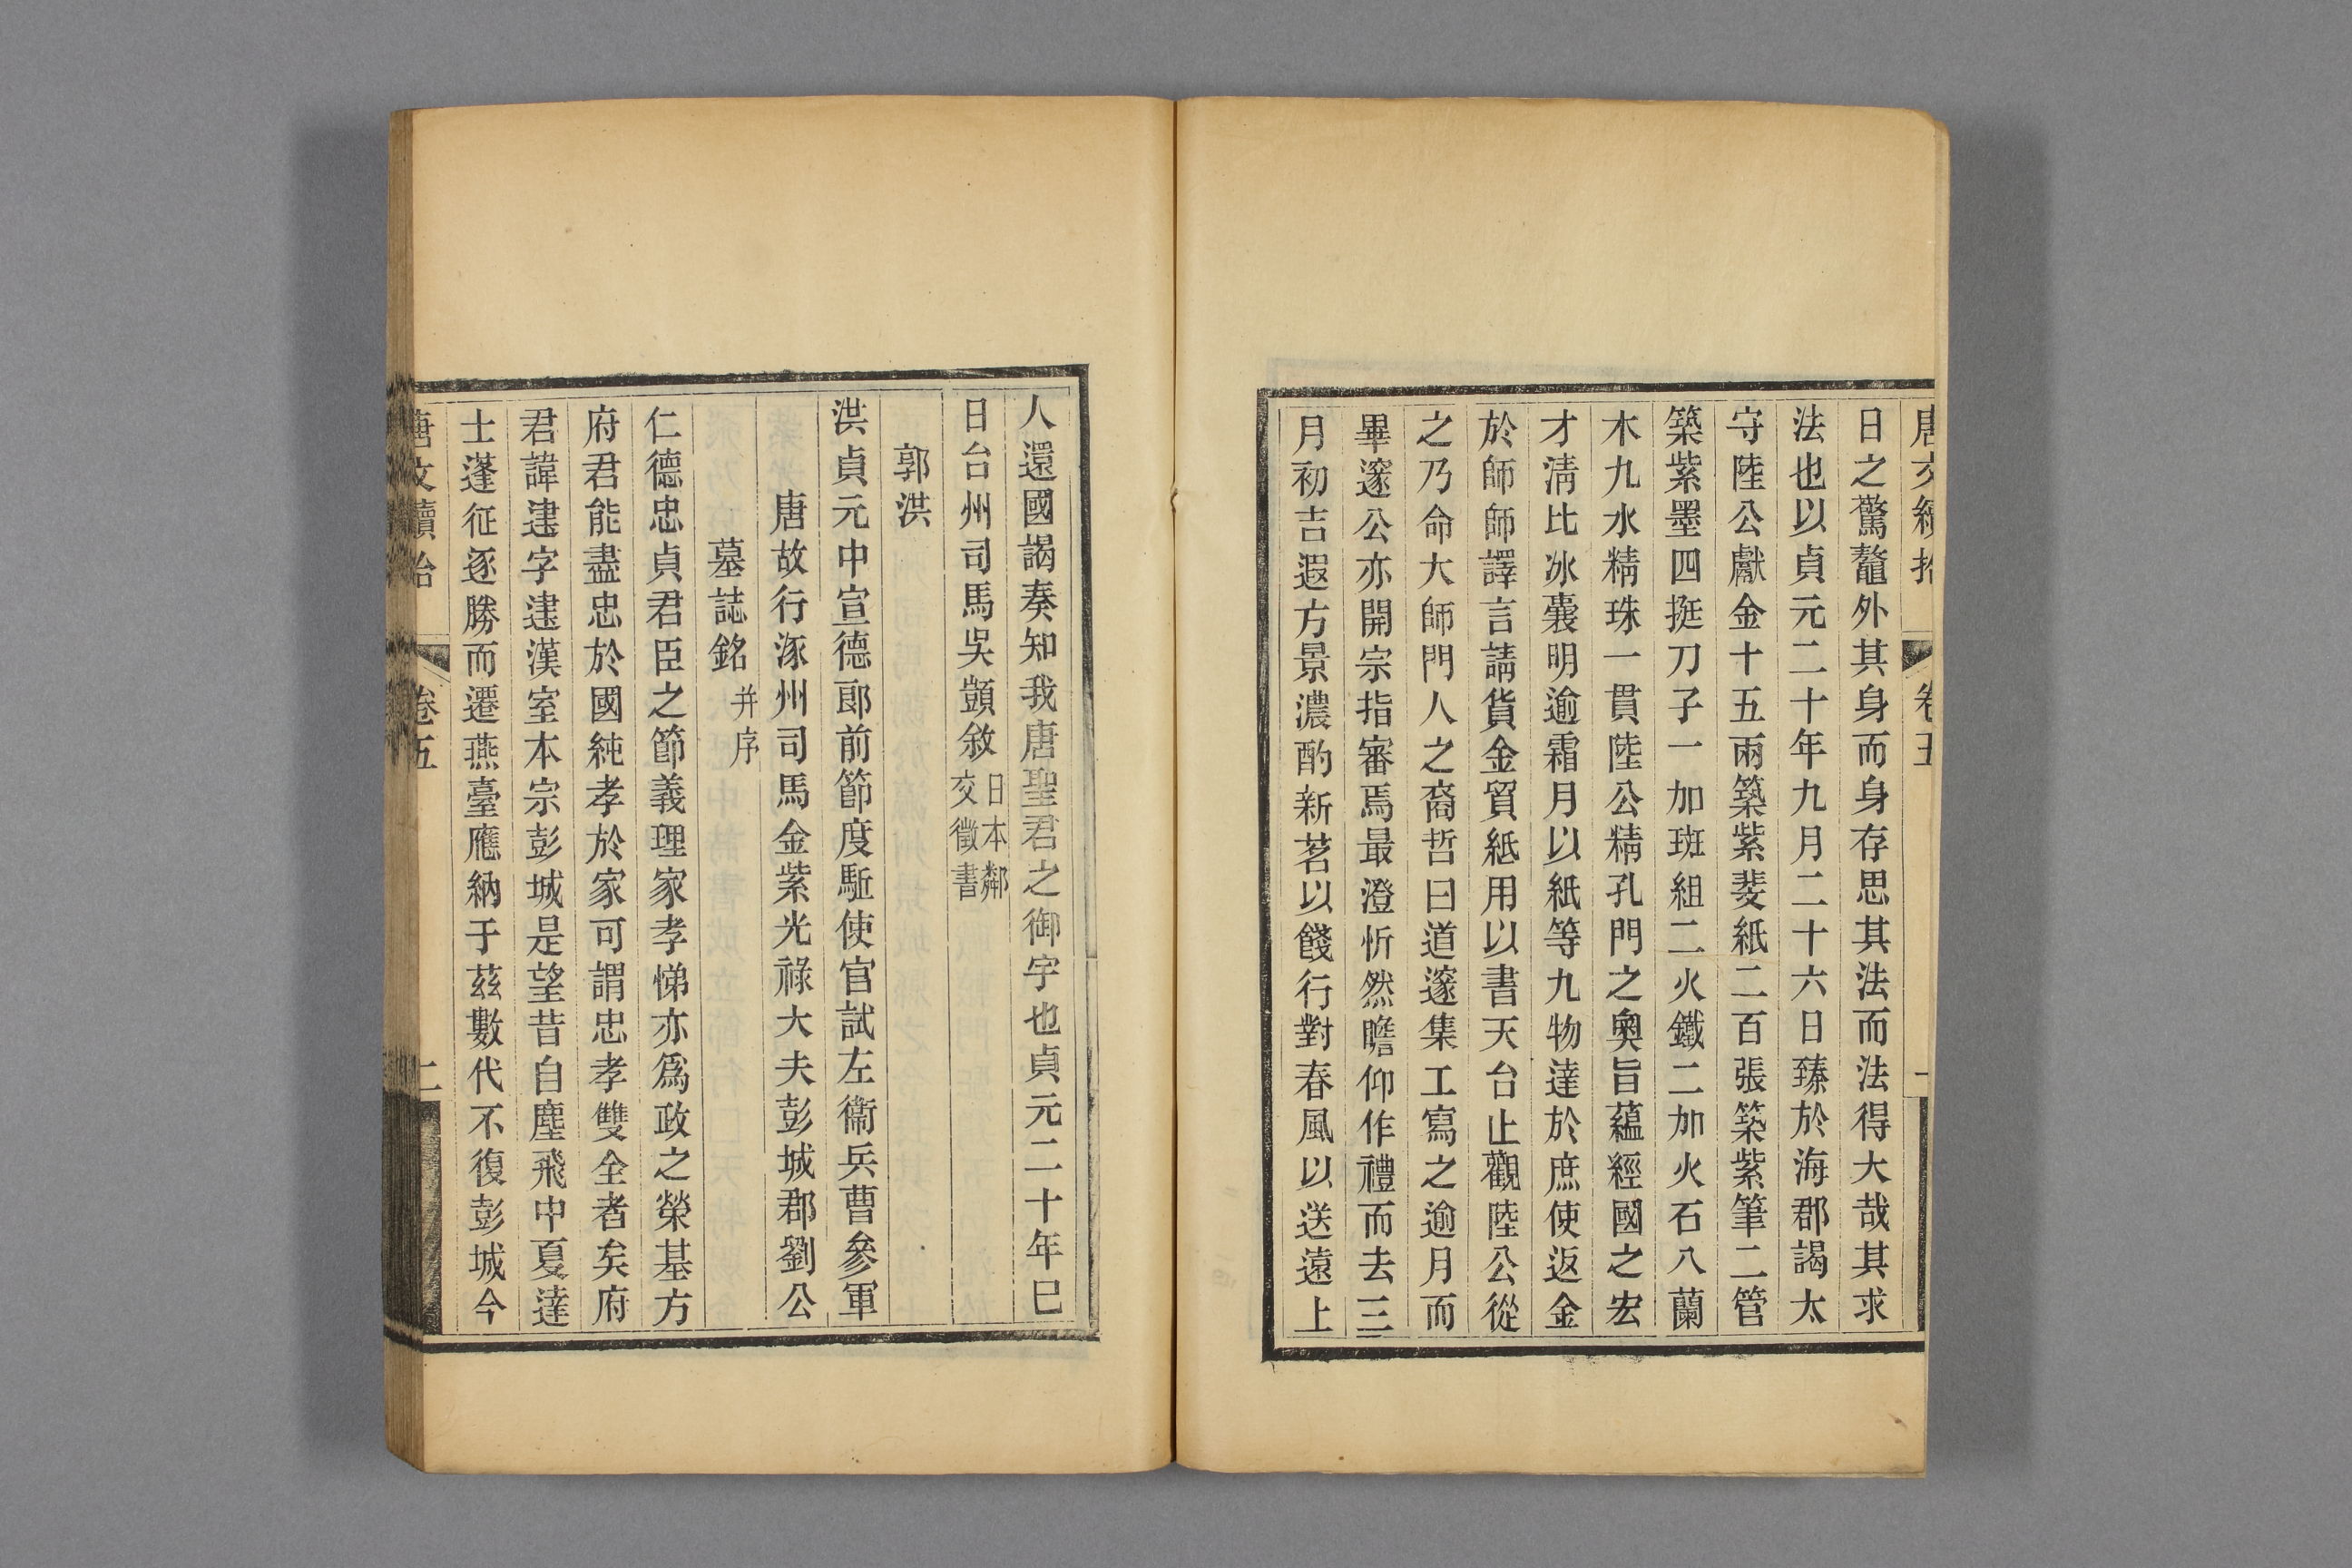 唐文續拾 卷五 一
日之驚鼇外其身而身存思其法而法得大哉其求
法也以貞元二十年九月二十六日臻於海郡謁太
守陸公獻金十五兩築紫斐紙二百張築紫筆二管
築紫墨四挺刀子一加斑組二火鐵二加火石八蘭
木九水精珠一貫陸公精孔門之奧旨蘊經國之宏
才淸比冰囊明逾霜月以紙等九物達於庶使返金
於師師譯言請貨金貿紙用以書天台止觀陸公從
之乃命大師門人之裔哲曰道邃集工寫之逾月而
畢邃公亦開宗指審焉最澄忻然瞻仰作禮而去三
月初吉遐方景濃酌新茗以餞行對春風以送遠上
人還國謁奏知我唐聖君之御宇也貞元二十年巳
日台州司馬吳顗敘 日本鄰
交徵書
郭洪
洪貞元中宣德郎前節度駈使官試左衞兵曹參軍
唐故行涿州司馬金紫光祿大夫彭城郡劉公
墓誌銘 并序
仁德忠貞君臣之節義理家孝悌亦爲政之榮基方
府君能盡忠於國純孝於家可謂忠孝雙全者矣府
君諱建字建漢室本宗彭城是望昔自塵飛中夏達
士蓬征逐勝而遷燕臺應納于茲數代不復彭城今
唐文續拾 卷五 二